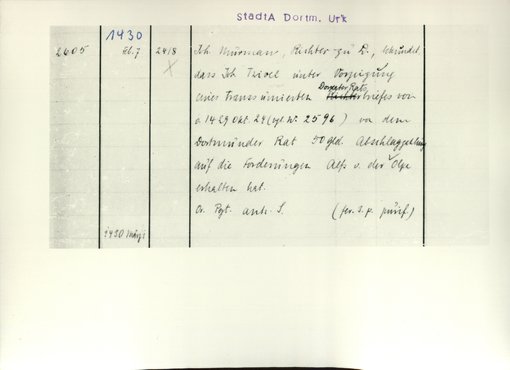 StadtA Dortm. Urk
1430
2605
2418
Joh. Murman, Richter zu D., bekundet
dass Joh Trisel unter Vorzeigung
eines Transsumierten
Dorpater Rats
Richterbriefes von
1429 Okt. 24 (vgl. Nr. 2596) von dem
Dortmunder Rat 50 gld. Abschlagzahlung
auf die Forderungen Alfs v. der Olpe
erhalten hat.
Or. Pgt. anh. S.
1430 März